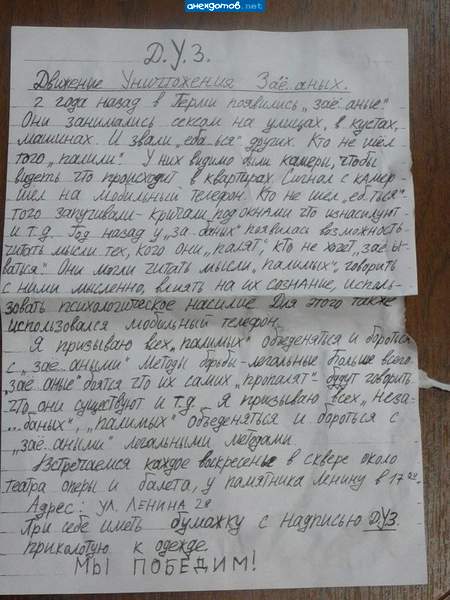 анекдотов.net
Д.У.З.
Движение Уничтожения Заё..аных.
2 года назад в Перми появились „зае..аные"
Они занимались сексом на улицах, в кустах,
машинах. И звали „еба..ься" других. Кто не шёл
того „палили". У них видимо были камеры, чтобы
видеть что происходит в квартирах. Сигнал с камер
шёл на мобильный телефон. Кто не шел „еб..ться"
того запугивали - кричали под окнами что изнасилуют
и т.д. Год назад у „за..баных" появилась возможность
читать мысли тех, кого они „палят", кто не хочет „зае..ы-
ваться". Они могли читать мысли „палимых", говорить
с ними мысленно, влиять на их сознание, исполь-
зовать психологическое насилие. Для этого также
использовался мобильный телефон.
Я призываю всех „палимых" обеденятся и бороться
с „зае..аными". Методы борьбы - легальные. Больше всего
„зае..аные" боятся что их самих „пропалят" - будут говорить
что они существуют и т.д. Я призываю всех „неза-
..баных", „палимых" обеденяться и бороться с
„заё..аными" легальными методами.
Встречаемся каждое воскресенье в сквере около
театра оперы и балета, у памятника Ленину в 17 00.
Адрес: ул. Ленина
При себе иметь бумажку с надписью Д.У.З.
приколотую к одежде.
МЫ ПОБЕДИМ!